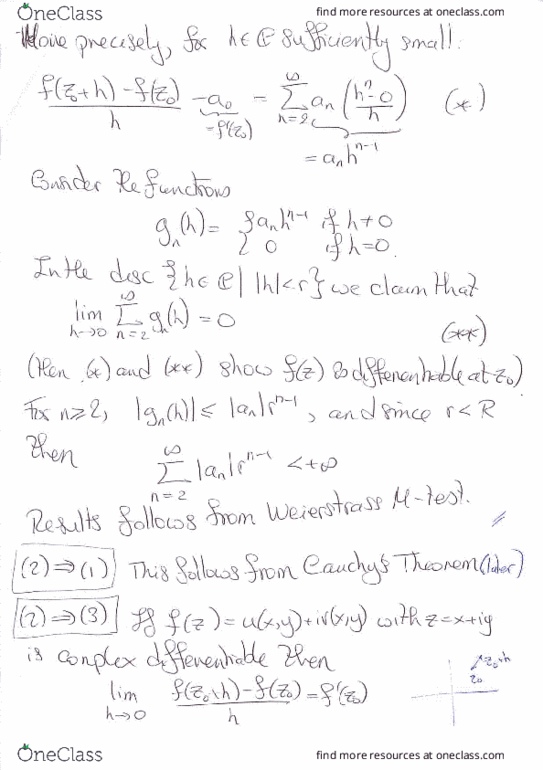 OneClass
find more resources at oneclass.com
More precisely, for h∈ℂ sufficiently small:
(f(z₀+h) - f(z₀))/h - a₀ = ∑_{n=2}^∞ aₙ ((hⁿ-0)/h) (*)
= f'(z₀)
= aₙhⁿ⁻¹
Consider the functions
gₙ(h) = { aₙhⁿ⁻¹ if h≠0
0 if h=0.
In the disc {h∈ℂ | |h|<r} we claim that
lim_{h→0} ∑_{n=2}^∞ gₙ(h) = 0 (**)
(then (*) and (**) show f(z) is differentiable at z₀)
Fix n≥2, |gₙ(h)| ≤ |aₙ|rⁿ⁻¹, and since r<R
then ∑_{n=2}^∞ |aₙ|rⁿ⁻¹ < +∞
Results follows from Weierstrass M-test. //
(2)⇒(1) This follows from Cauchy's Theorem (later)
(2)⇒(3) If f(z) = u(x,y)+iv(x,y) with z=x+iy
is complex differentiable then
z₀+h
z₀
lim_{h→0} (f(z₀+h) - f(z₀))/h = f'(z₀)
OneClass
find more resources at oneclass.com